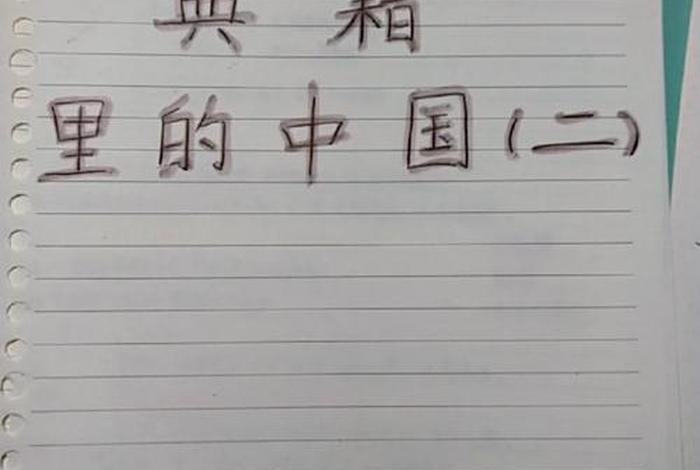 典籍
里的中国(二)